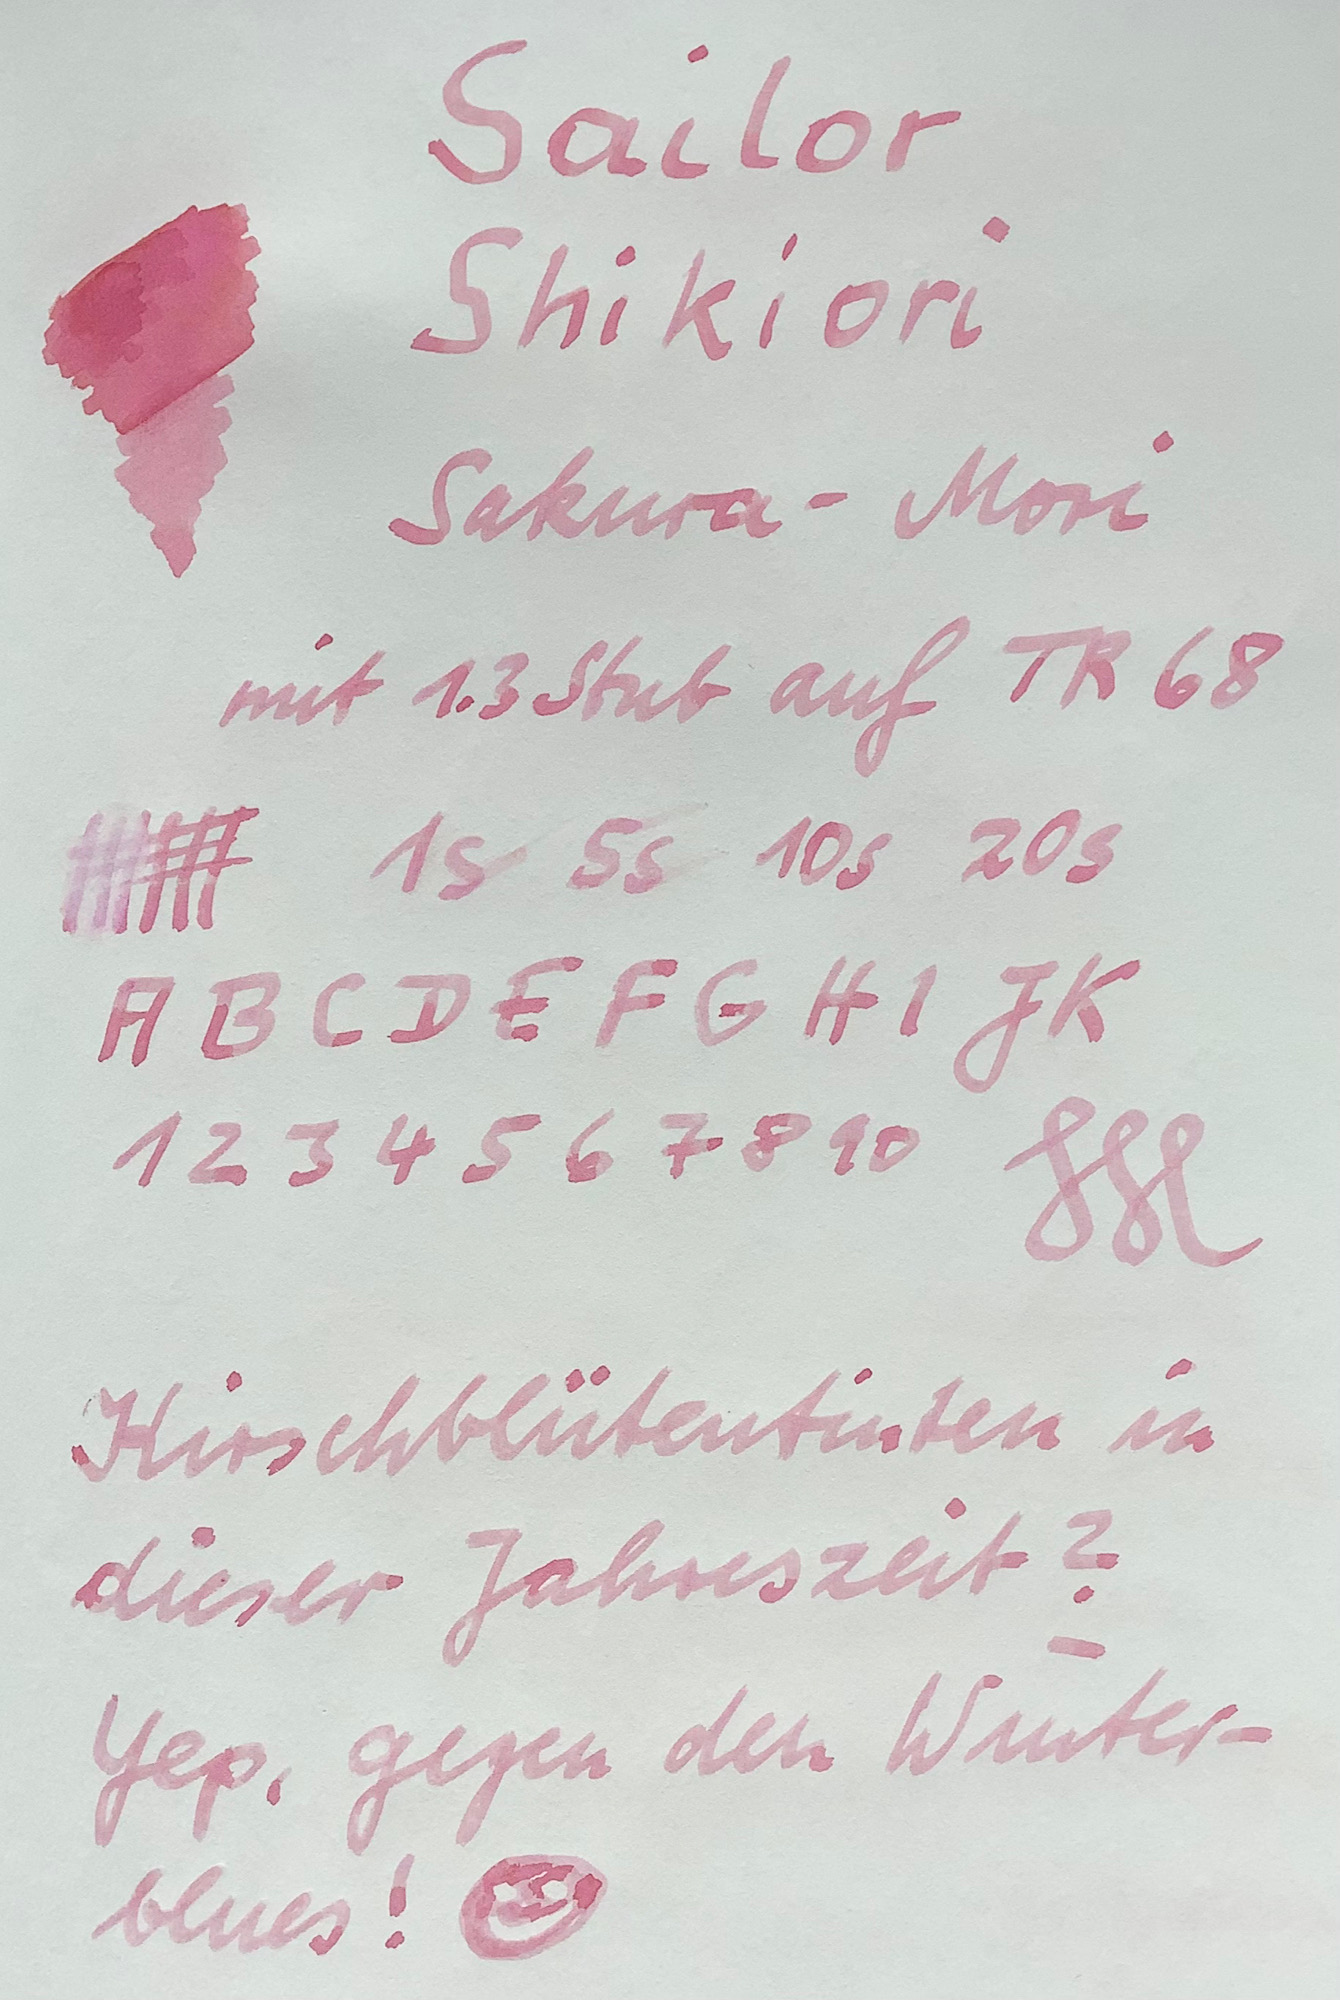 Sailor
Shikiori
Sakura - Mori
mit 1.3 Stub auf TR 68
1s 5s 10s 20s
A B C D E F G H I J K
1 2 3 4 5 6 7 8 9 10
Kirschblütentinten in
dieser Jahreszeit?
Yep, gegen den Winter-
blues!